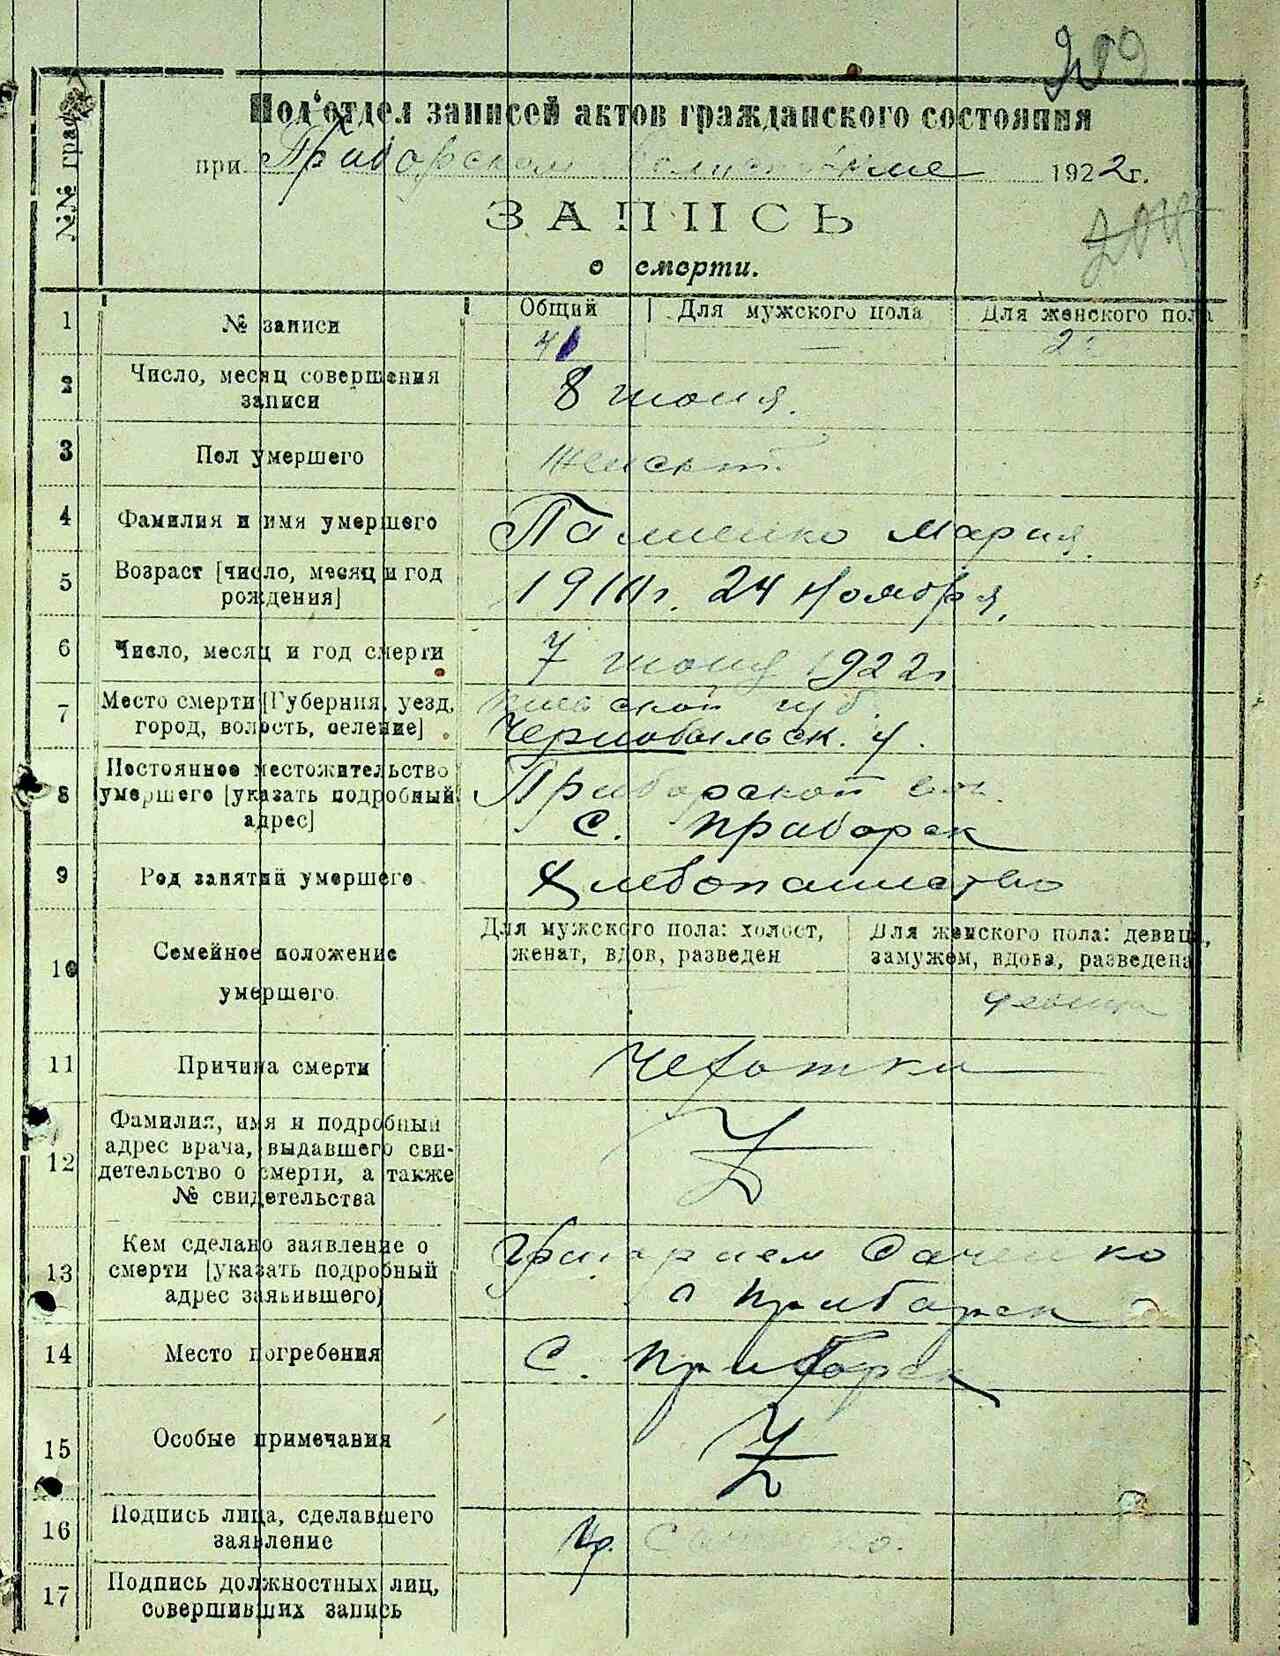 209
№№ граф
Под'отдел записей актов гражданского состояния
при Приборском 1922г.
ЗАПИСЬ
о смерти.
204
1 № записи Общий Для мужского пола Для женского пола
41 —
2 Число, месяц совершения записи 8 июня.
3 Пол умершего Женский
4 Фамилия и имя умершего Мария.
5 Возраст [число, месяц и год рождения] 24 Ноября,
6 Число, месяц и год смерти 7 июня 1922г
7 Место смерти [Губерния, уезд, город, волость, селение] Киевской губ.
Чернобыльск. у.
8 Постоянное местожительство умершего [указать подробный адрес] Приборской вол.
с. Приборск
9 Род занятий умершего Хлебопашество
10 Семейное положение умершего Для мужского пола: холост, женат, вдов, разведен Для женского пола: девица, замужем, вдова, разведена
девица
11 Причина смерти Чехотки
12 Фамилия, имя и подробный адрес врача, выдавшего свидетельство о смерти, а также № свидетельства
13 Кем сделано заявление о смерти [указать подробный адрес заявившего] Григорием
с Приборск
14 Место погребения С. Приборск
15 Особые примечания
16 Подпись лица, сделавшего заявление Гр.
17 Подпись должностных лиц, совершивших запись